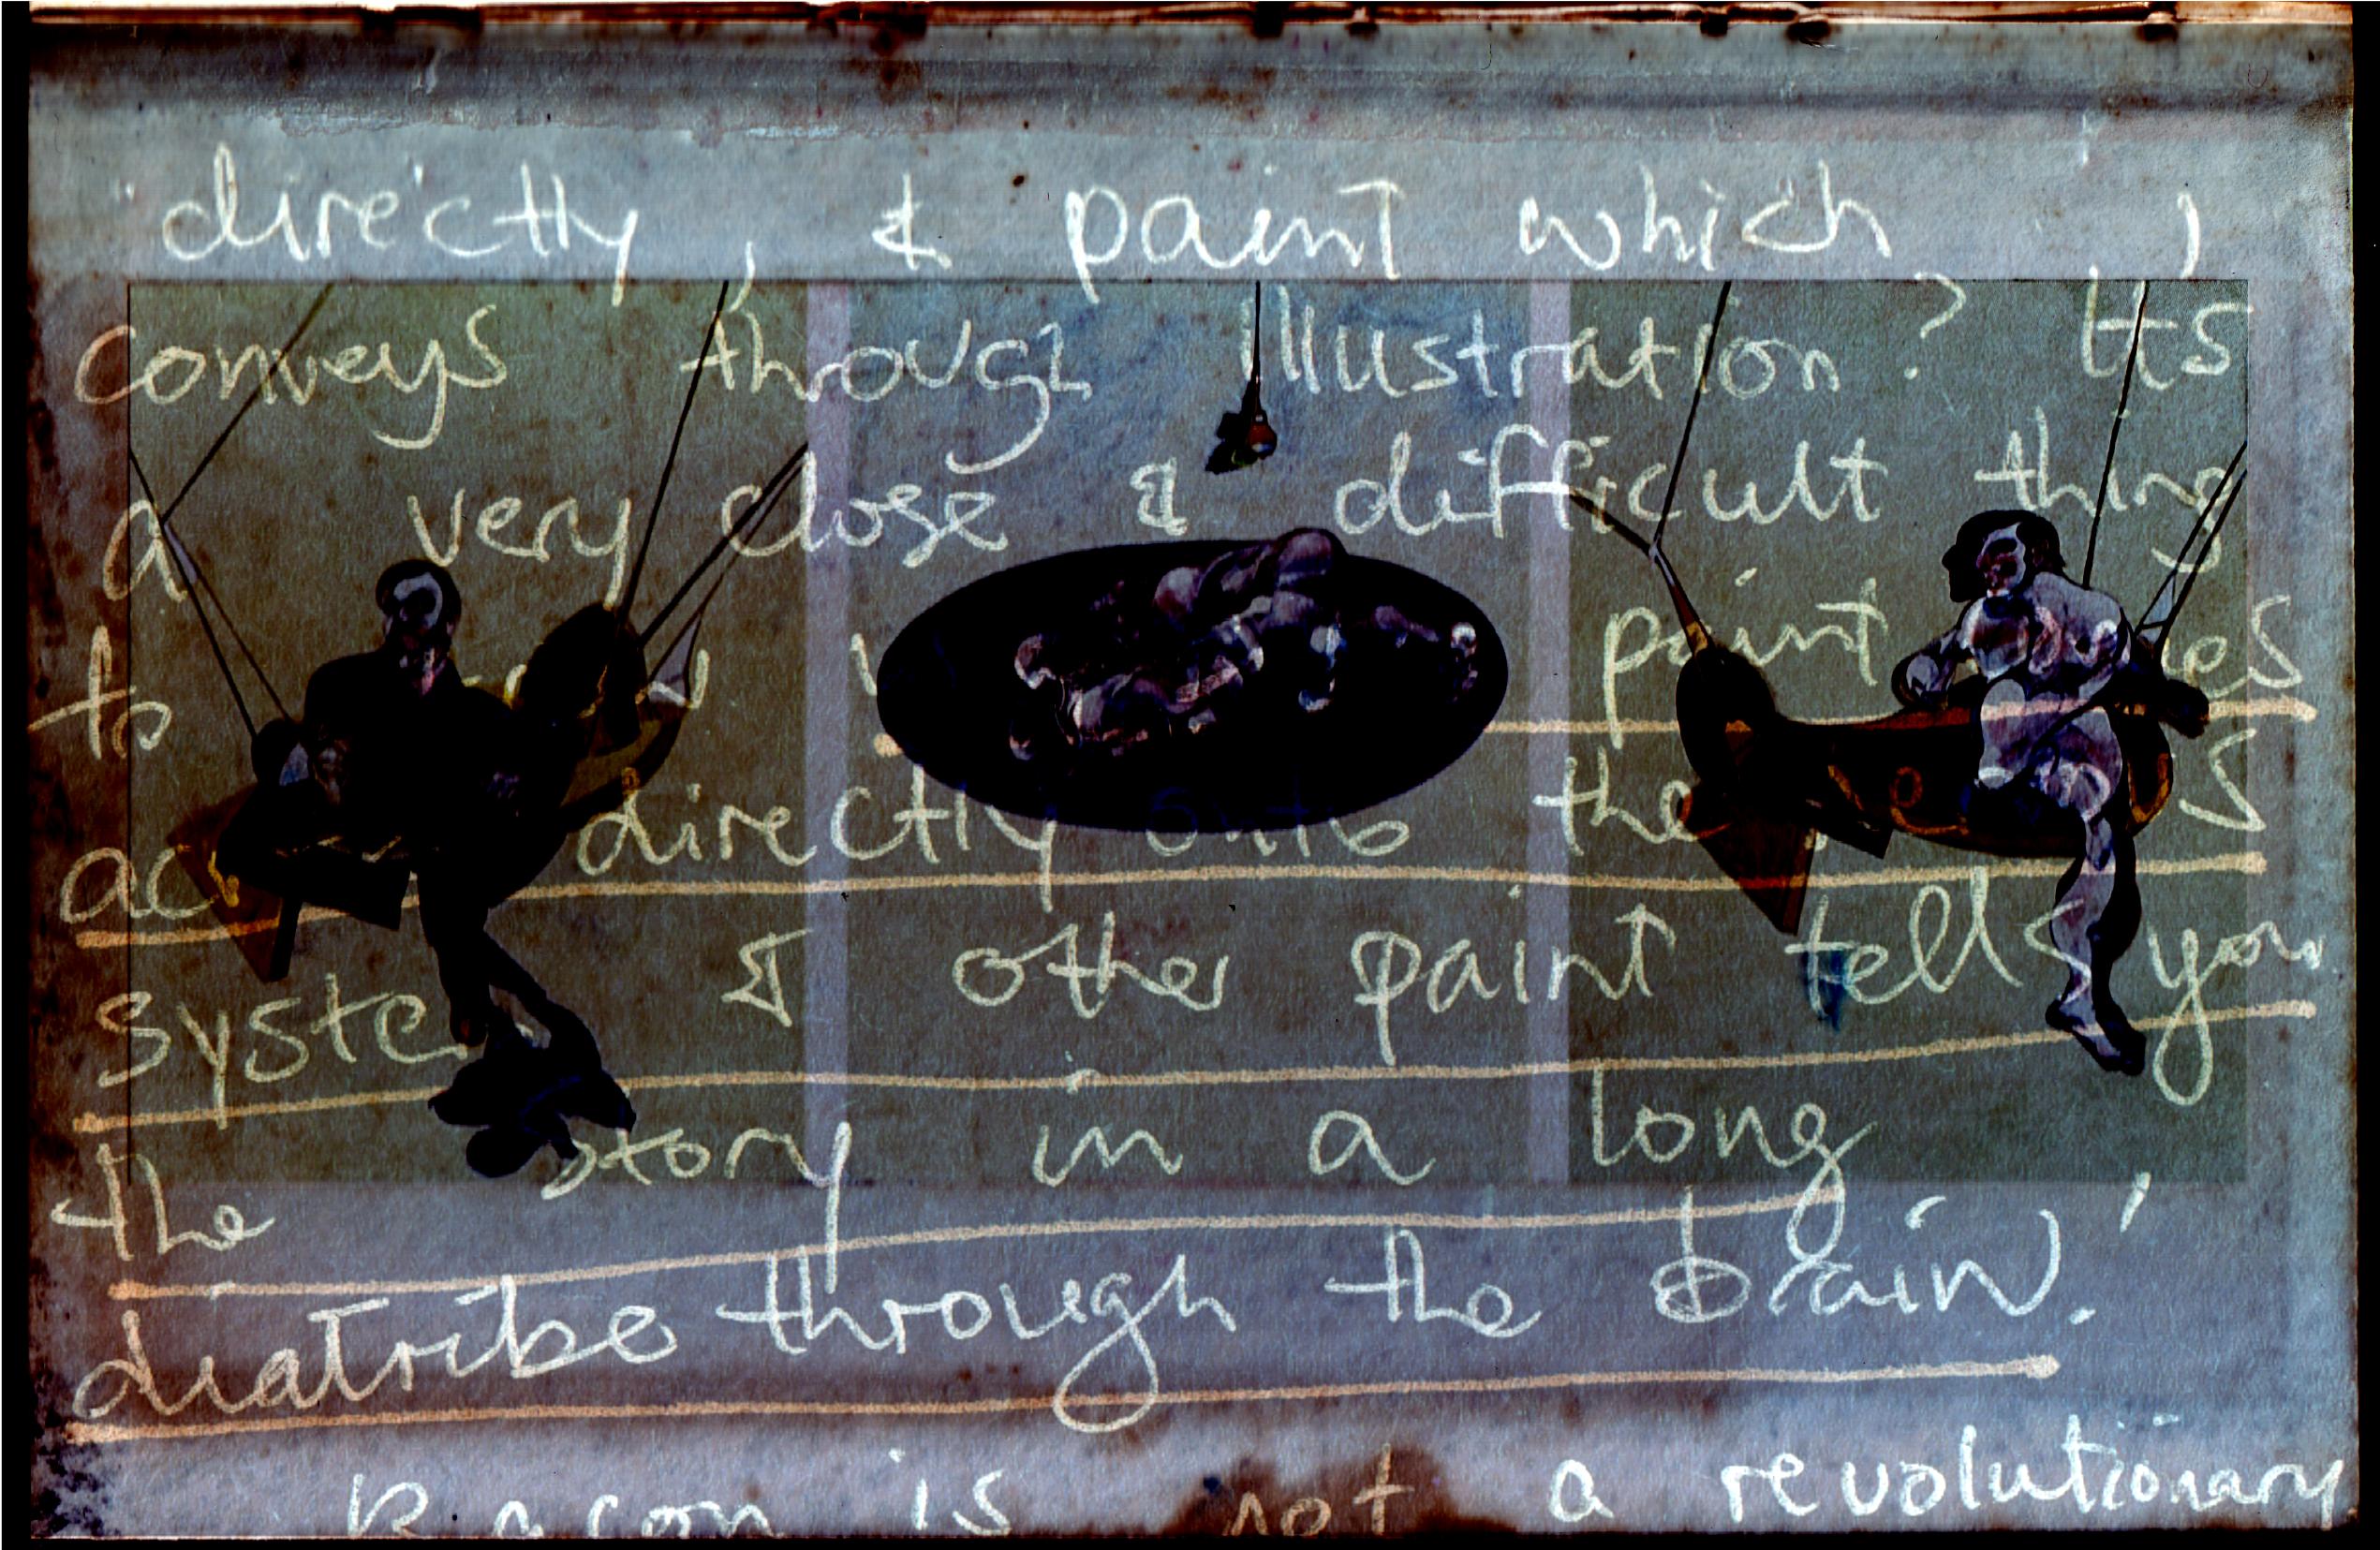 directly, & paint which
conveys through illustration? Its
a very close & difficult thing
to paint
directly onto the
& other paint tells you
the story in a long
diatribe through the brain.'
Bacon is not a revolutionary